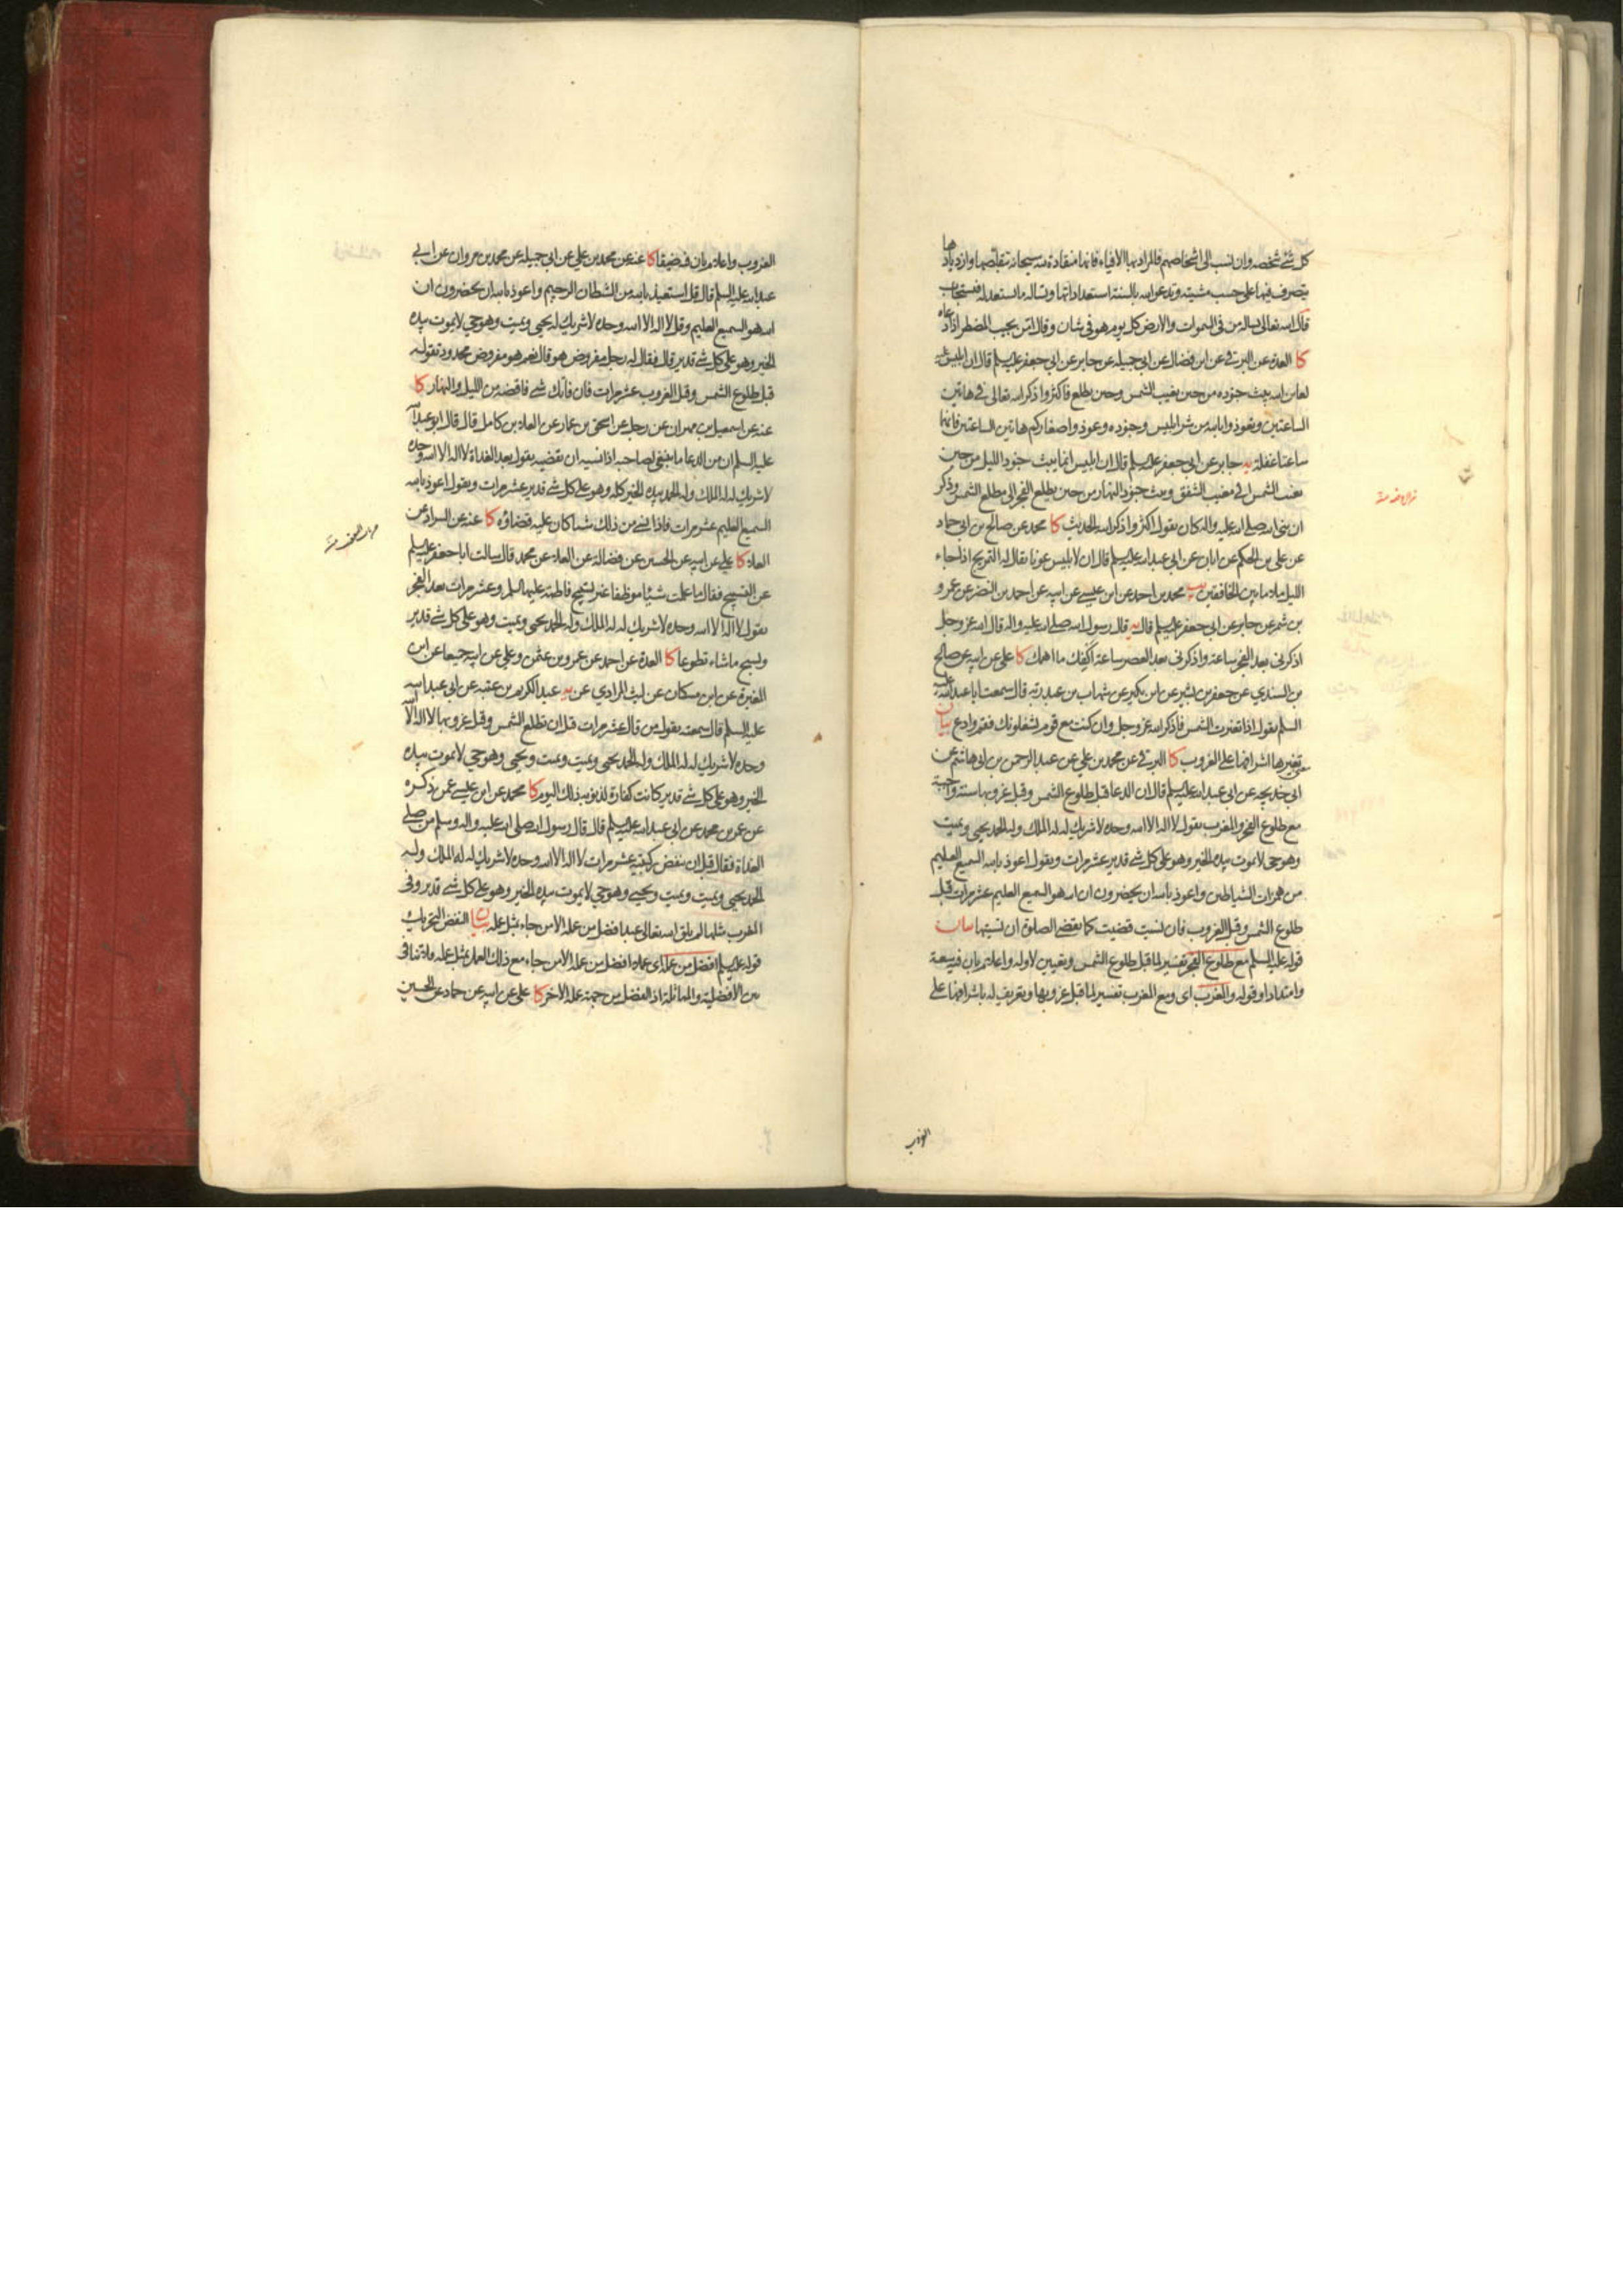 كل شئ شخصه وان نسب الى اشخاصهم فالمراد بها الافياء فانها منقادة لله سبحانه تقلصها وازديادها
يتصرف فيها على حسب مشيته وتدعن الله بالسنة استعداداتها وتساله ما تستعد له فتستجاب
قال الله تعالى يساله من فى السموات والارض كل يوم هو فى شان وقال امن يجيب المضطر اذا دعاه
كا العدة عن البرقى عن ابن فضال عن ابى جميله عن جابر عن ابى جعفر عليه السلم قال ان ابليس عليه
لعاين الله يبث جنوده من حين تغيب الشمس وحين يطلع فاكثروا ذكر الله تعالى فى هاتين
الساعتين وتعوذوا بالله من شر ابليس وجنوده وعوذوا صغاركم هاتين الساعتين فانهما
ساعتا غفلة يه جابر عن ابى جعفر عليه السلم قال ان ابليس انما يبث جنود الليل من حين
تغيب الشمس الى مغيب الشفق ويبث جنود النهار من حين يطلع الفجر الى مطلع الشمس وذكر
ان نبى الله صلى الله عليه واله كان يقول اكثروا ذكر الله الحديث كا محمد عن صالح بن ابى حماد
عن على بن الحكم عن ابان عن ابى عبد الله عليه السلم قال ان لابليس عونا يقال له التمريح اذا جاء
الليل ملاء ما بين الخافقين يب محمد بن احمد عن ابن عيسى عن ابيه عن احمد بن النضر عن عمرو
بن شمر عن جابر عن ابى جعفر عليه السلم قال يه قال رسول الله صلى الله عليه واله قال الله عز وجل
اذكرنى بعد الفجر ساعة واذكرنى بعد العصر ساعة اكفك ما اهمك كا على عن ابيه عن صالح
بن السندي عن جعفر بن بشير عن ابن بكير عن شهاب بن عبد ربه قال سمعت ابا عبد الله عليه
السلم يقول اذا تغيرت الشمس فاذكر الله عز وجل وان كنت مع قوم يشغلونك فقم وادع بيان
معنى تغيرها اشرافها على الغروب كا البرقى عن محمد بن علي عن عبد الرحمن بن ابى هاشم عن
ابى خديجه عن ابى عبد الله عليه السلم قال ان الدعا قبل طلوع الشمس وقبل غروبها سنة واجبة
مع طلوع الفجر والمغرب يقول لا اله الا الله وحده لا شريك له له الملك وله الحمد يحيى ويميت
وهو حى لا يموت بيده الخير وهو على كل شئ قدير عشر مرات ويقول اعوذ بالله السميع العليم
من همزات الشياطين واعوذ بالله ان يحضرون ان الله هو السميع العليم عشر مرات قبل
طلوع الشمس وقبل الغروب فان نسيت قضيت كما تقضى الصلوة ان نسيتها بيان
قوله عليه السلم مع طلوع الفجر تفسير لما قبل طلوع الشمس وتعيين لاوله واعلام بان فيه سعة
وامتدادا وقوله والمغرب اى ومع المغرب تفسير لما قبل غروبها وتعريف له باشرافها على
الغروب
الغروب واعلام بان فيه ضيقا كا عنه عن محمد بن علي عن ابى جميله عن محمد بن مروان عن ابى
عبد الله عليه السلم قال قل استعيذ بالله من الشيطان الرجيم واعوذ بالله ان يحضرون ان
الله هو السميع العليم وقل لا اله الا الله وحده لا شريك له يحيى ويميت وهو حي لا يموت بيده
الخير وهو على كل شئ قدير قال فقال له رجل مفروض هو قال نعم هو مفروض محدود تقوله
قبل طلوع الشمس وقبل الغروب عشر مرات فان فاتك شئ فاقضه من الليل والنهار كا
عنه عن اسمعيل بن مهران عن رجل عن اسحق بن عمار عن العلاء بن كامل قال قال ابو عبد الله
عليه السلم ان من الدعا ما ينبغى لصاحبه اذا نسيه ان يقضيه يقول بعد الغداة لا اله الا الله وحده
لا شريك له له الملك وله الحمد بيده الخير كله وهو على كل شئ قدير عشر مرات ويقول اعوذ بالله
السميع العليم عشر مرات فاذا نسى من ذلك شيئا كان عليه قضاؤه كا عنه عن السراد عن
العلاء كا علي عن ابيه عن الحسين عن فضالة عن العلاء عن محمد قال سالت ابا جعفر عليه السلم
عن التسبيح فقال ما علمت شيئا موظفا غير تسبيح فاطمة عليها السلم وعشر مرات بعد الفجر
يقول لا اله الا الله وحده لا شريك له له الملك وله الحمد يحيى ويميت وهو على كل شئ قدير
ويسبح ما شاء تطوعا كا العدة عن احمد عن عمرو بن عثمن وعلي عن ابيه جميعا عن ابن
المغيرة عن ابن مسكان عن ليث المرادي عن يه عبد الكريم بن عتبه عن ابى عبد الله
عليه السلم قال سمعته يقول من قال عشر مرات قبل ان تطلع الشمس وقبل غروبها لا اله الا الله
وحده لا شريك له له الملك وله الحمد يحيى ويميت ويميت ويحيى وهو حي لا يموت بيده
الخير وهو على كل شئ قدير كانت كفارة لذنوبه ذلك اليوم كا محمد عن ابن عيسى عمن ذكره
عن عمر بن محمد عن ابى عبد الله عليه السلم قال قال رسول الله صلى الله عليه واله وسلم من صلى
الغداة فقال قبل ان ينفض ركبتيه عشر مرات لا اله الا الله وحده لا شريك له له الملك وله
الحمد يحيى ويميت ويميت ويحيى وهو حي لا يموت بيده الخير وهو على كل شئ قدير وفى
المغرب مثلها لم يلق الله تعالى عبد افضل من عمله الا من جاء بمثل عمله بيان النفض التحريك
قوله عليه السلم افضل من عمله اى عملا افضل من عمله الا من جاء مع ذلك العمل بمثل عمله فلا تنافى
بين الافضلية والمماثلة اذ الفضل من جهة عمله الاخر كا على عن ابيه عن حماد عن الحسين